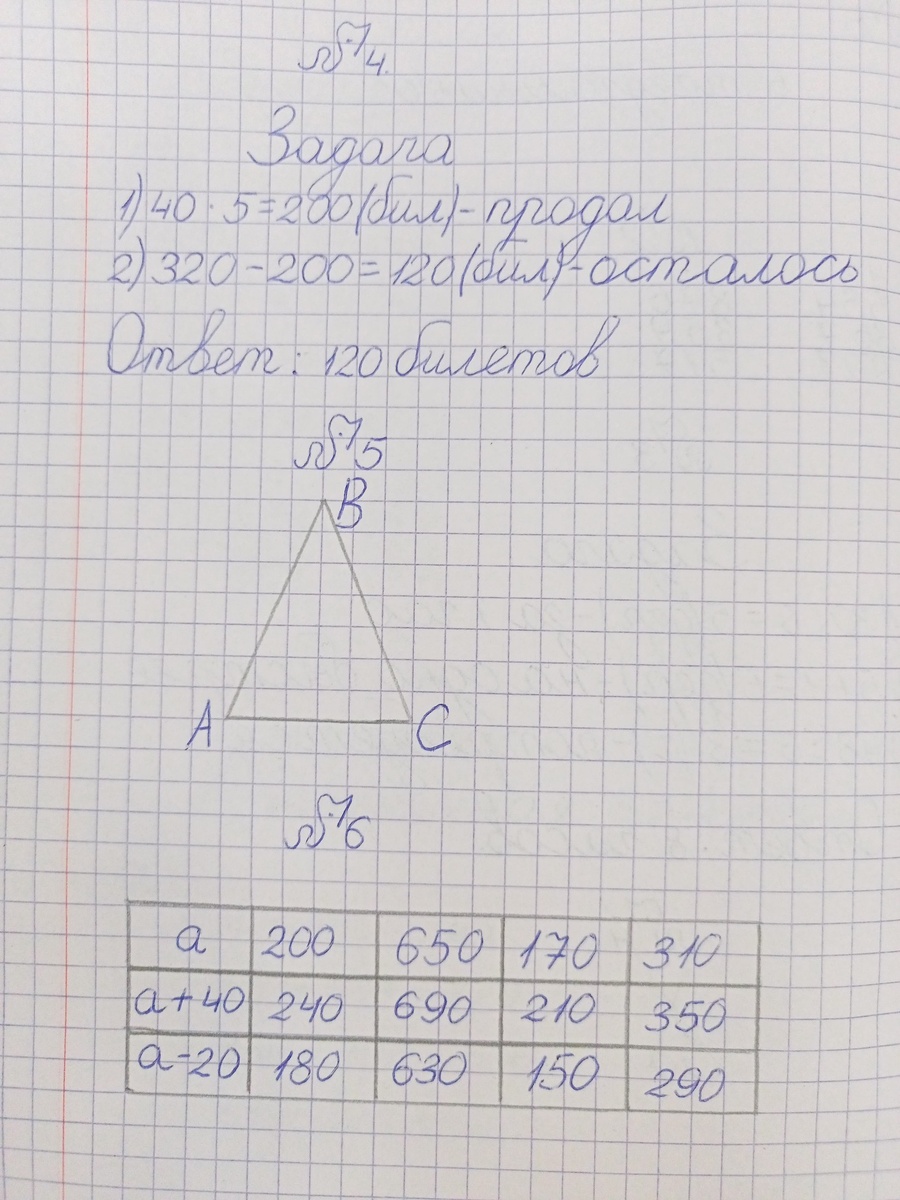 №4.
Задача
1) 40 · 5 = 200 (бил) - продал
2) 320 - 200 = 120 (бил) - осталось
Ответ: 120 билетов
№5
B
A C
№6
a 200 650 170 310
a+40 240 690 210 350
a-20 180 630 150 290